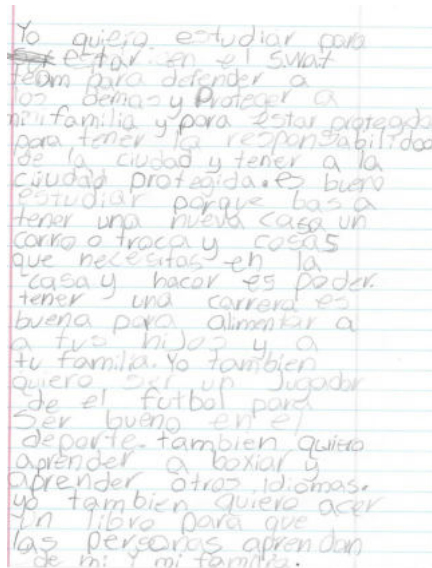 Yo quiero estudiar para
estar en el swat
team para defender a
los demas y Proteger a
mi familia y para estar protegida
para tener la responsabilidad
de la ciudad y tener a la
ciudad protegida. es bueno
estudiar porque bas a
tener una nueva casa un
carro o troca y cosas
que necesitas en la
casa y hacor es poder.
tener una carrera es
buena para alimentar a
a tus hijos y a
tu familia. Yo tambien
quiero ser un Jugador
de el futbol para
Ser bueno en el
deporte. tambien quiero
aprender a boxiar y
aprender otros idiomas.
yo tambien quiero acer
un libro para que
las personas aprendan
de mi Y mi familia.